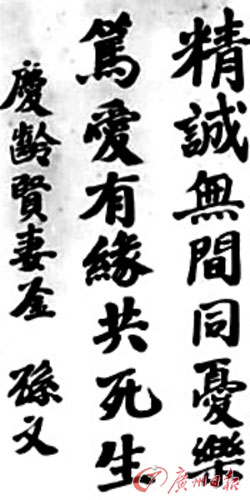 精誠無間同憂樂
篤愛有緣共死生
慶齡賢妻鉴 孫文
广州日报